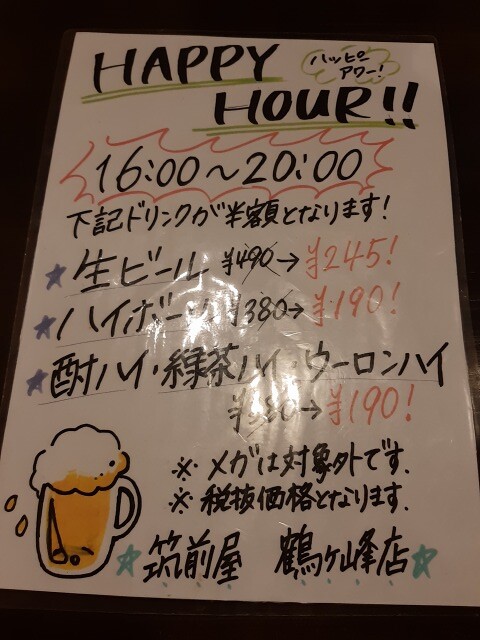 HAPPY
ハッピー
アワー!
HOUR!!
16:00~20:00
下記ドリンクが半額となります!
★生ビール ¥490→¥245!
★ハイボール ¥380→¥190!
★酎ハイ・緑茶ハイ・ウーロンハイ
¥380→¥190!
※メガは対象外です.
※税抜価格となります.
★筑前屋 鶴ヶ峰店★